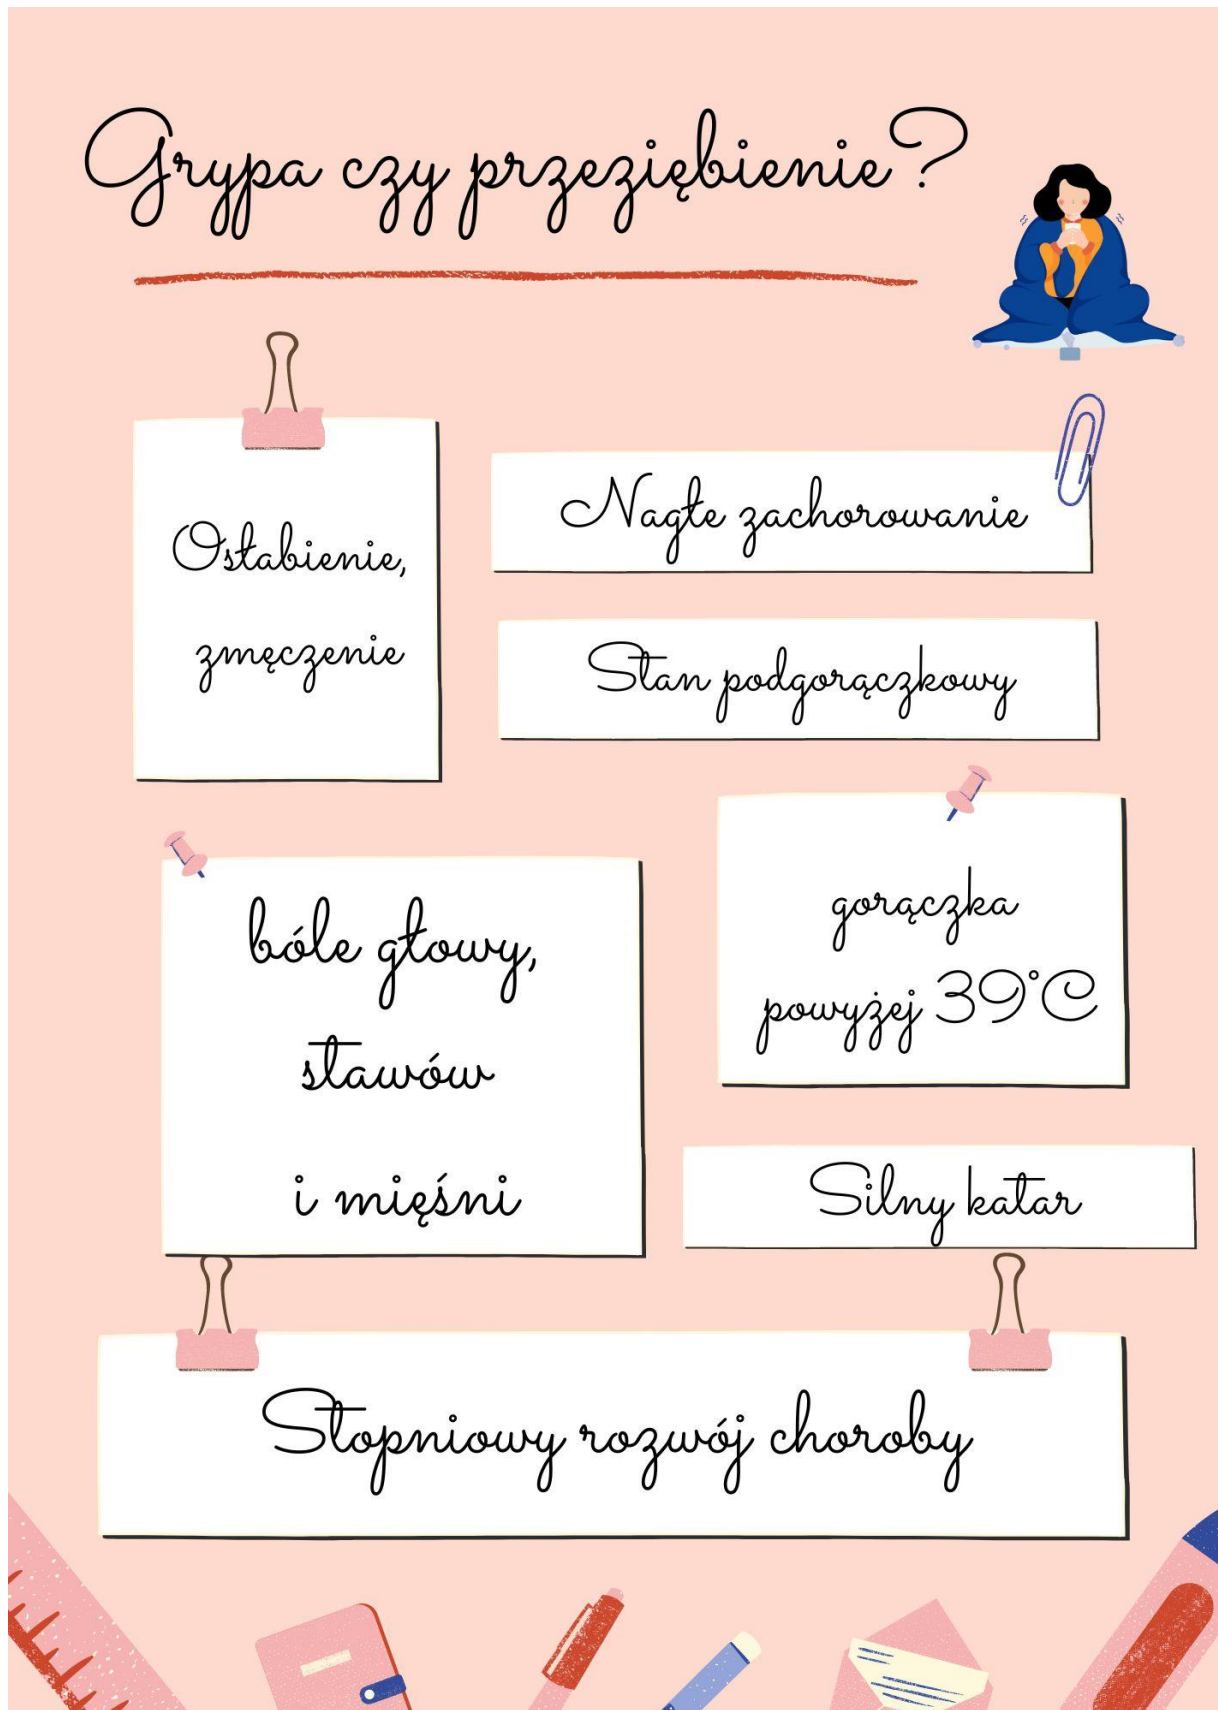 Grypa czy przeziębienie?
Osłabienie,
zmęczenie
Nagłe zachorowanie
Stan podgorączkowy
bóle głowy,
stawów
i mięśni
gorączka
powyżej 39°C
Silny katar
Stopniowy rozwój choroby